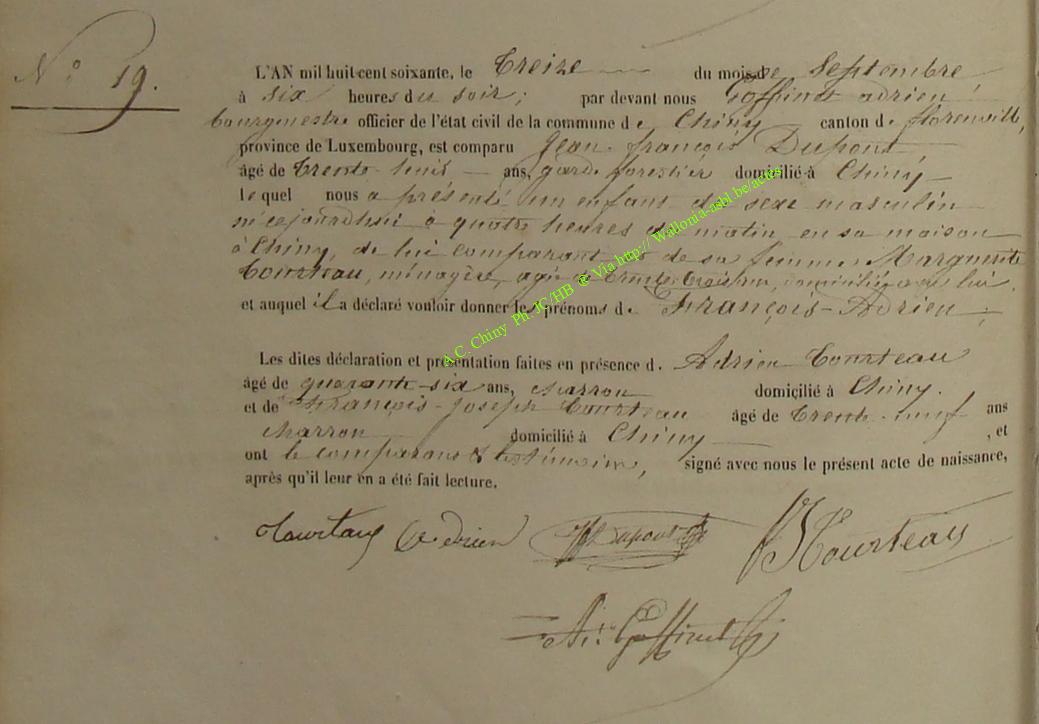 N° 19.
L'AN mil huit cent soixante, le Treize du mois de Septembre
à six heures du soir; par devant nous Goffinet adrien
bourgmestre officier de l'état civil de la commune de Chiny canton de florenville,
province de Luxembourg, est comparu Jean-françois Dupont,
âgé de trente-huit ans, garde forestier domicilié à Chiny
lequel nous a présenté un enfant de sexe masculin
né cejourd'hui à quatre heures du matin en sa maison
à Chiny, de lui comparant & de sa femme Marguerite
Tourteau, ménagère, agée de trente-trois ans, domiciliée avec lui,
et auquel il a déclaré vouloir donner les prénoms de François-Adrien;
Les dites déclaration et présentation faites en présence d. Adrien Tourteau
âgé de quarante-six ans, charron domicilié à Chiny.
et de François-Joseph Tourteau âgé de trente-neuf ans
charron domicilié à Chiny , et
ont le comparant & les témoins, signé avec nous le présent acte de naissance,
après qu'il leur en a été fait lecture.
Adrien Dupont Tourteau
Ad. Goffinet
A.C. Chiny Ph JC/HB @ Via http://Wallonia-asbl.be/actes